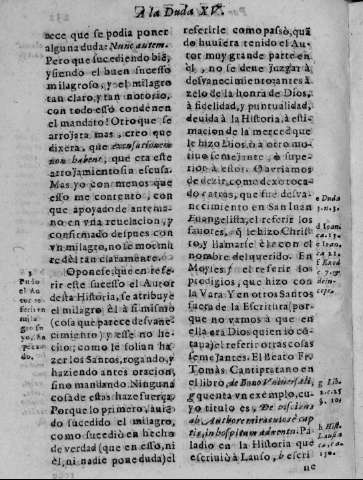 A la Duda XV.
nece que se podia poner
alguna duda: Nunc autem.
Pero que sucediendo bié,
y siendo el buen sucesso
milagroso, y el milagro
tan claro, y tan notorio,
con todo esso condenen
el mandato! Otro que se
arrojara mas, creo que
dixera, que excusationem
non habent, que era este
arrojamiento sin escusa.
Mas yo con menos que
esso me contento, con
que apoyado de antemano
en vna reuelacion, y
confirmado despues con
vn milagro, no se
re dèl tan claramente.
Oponese, que en referir
este sucesso el Autor
desta Historia, se atribuye
el milagro èl à si mismo
(cosa que parece desvanecimiento)
y esse no hecho;
como le solian hazer
los Santos, rogando, y
haziendo antes oracion,
sino mandando. Ninguna
cosa de estas haze fuerça.
Porque lo primero, auiendo
sucedido el milagro,
como sucediò en hecho
de verdad (que en esso, ni
èl, ni nadie pone duda) el
3
Pudo
el Autor
referir
milagro
suyo,
do.
referirle como passò, quádo
huuiera tenido el Autor
muy grande parte en
èl, no se deue juzgàr à
desvanecimiento, antes à
zelo de la honra de Dios,
à fidelidad, y puntualidad,
deuida à la Historia, à estimacion
de la merced que
le hizo Dios, ò à otro motiuo
semejante, ò superior
à estos. O avriamos
de dezir, como dexo tocado
e otras, que fue desvanecimiento
en San Iuan
Euangelista, el referir los
fauores, q̃ le hizo Christo,
y llamarse èl con el
nombre del querido. En
Moyses f el referir los
prodigios, que hizo con
la Vara. Y en otros Santos
fuera de la Escritura (porque
no vamos à que en
ella era Dios quien lo dictaua)
el referir otras cosas
semejantes. El Beato Fr.
Tomàs Cantipratano en
el libro, de Bono Vniuersali,
g cuenta vn exemplo, cuyo
titulo es, De
ab Authore miraculosè captis,
in hospitum aduentu. Paladio
en la Historia que
escriuiò à Lauso, h escriue
e Duda
f Exod.
g Lib.
h Hist.
Lausia.